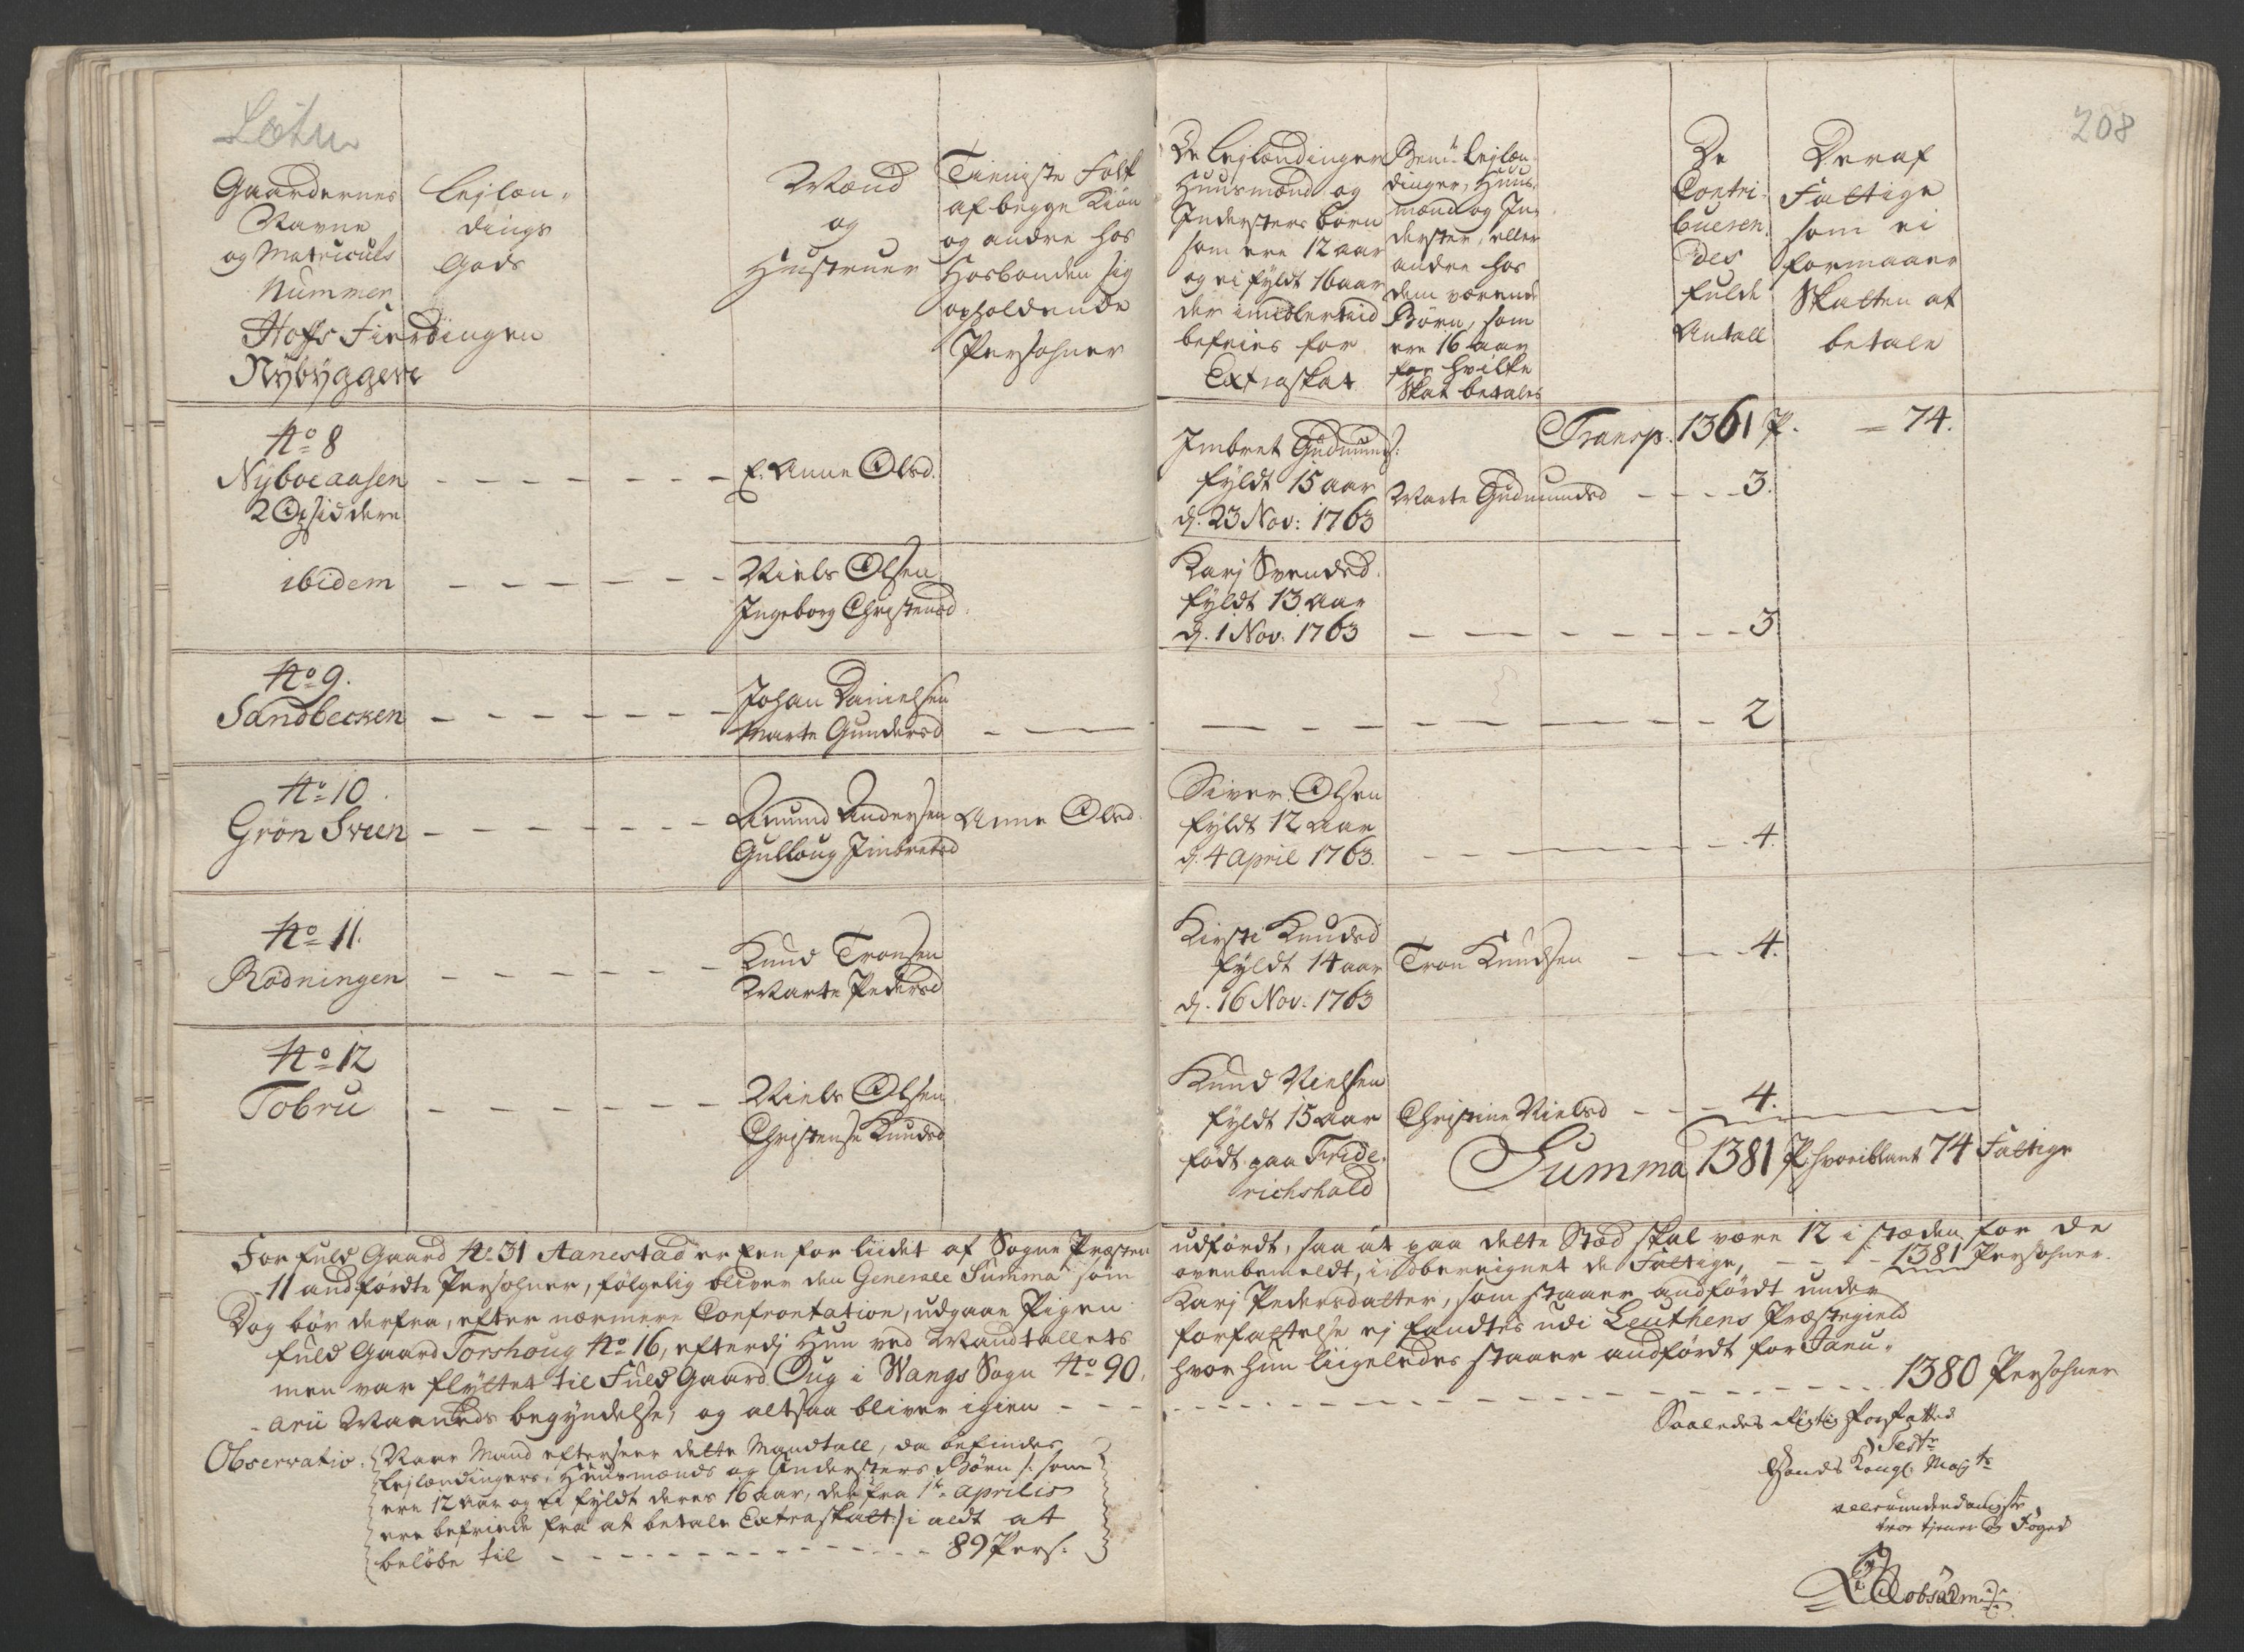 Løten
208
Gaardernes
Navne
og Matriculs
Nummer
Hoffs Fierdingen
Nÿbÿggere
Lejlæn-
dings
Gods
Mænd
og
Hustruer
Tieniste Folk
af begge Kiøn
og andre hos
Hosbonden sig
opholdende
Persohner
De Lejlændinger
Huusmænd og
Indersters børn
som ere 12 aar
og ei fÿldt 16 aar
der imidlertiid
befries for
Extraskat
Bem.te Lejlæn-
dinger, Huus-
mænd og In-
derster, eller
andre hos
dem værende
Børn, som
ere 16 aar
for hvilke
Skat betales
De
Contri-
bueren-
des
fulde
Antall
Deraf
Fattige
som ei
formaaer
Skatten at
betale
Transp. 1361 P. = 74.
No 8
Nÿboeaasen
2 Opsiddere
E. Anne Olsd.
Imbret Gudmunds:
fÿldt 15 aar
d. 23 Nov: 1763
Marte Gudmundsd - - - 3.
ibidem
Niels Olsen
Ingeborg Christensd.
Karj Svendsd.
fÿldt 13 Aar
d. 1 Nov. 1763
3
No 9.
Sandbecken
Johan Danielsen
Marte Gundersd
2
No 10
Grøn Sveen
Amund Andersen
Gulloug Imbretsd
Anne Olsd.
Siver Olsen
fÿldt 12 aar
d. 4 April 1763.
4.
No 11.
Rødningen
Knud Tronsen
Marte Pedersd
Kirsti Knudsd
fÿldt 14 aar
d. 16 Nov. 1763
Tron Knudsen - - - 4.
No 12
Tobru
Niels Olsen
Christense Knudsd
Knud Nielsen
fÿldt 15 aar
født paa Fride-
richshald
Christine Nielsd - - - 4.
Summa 1381 P. hvoriblant 74 Fattige
For fuld Gaard No 31 Aanestad er Een for liidet af Sogne Præsten
- 11 andførdte Persohner, følgelig bliver den Generale Summa som
Dog bør derfra, efter nærmere Confrontation, udgaae Pigen
fuld Gaard Torshoug No 16, efterdj Hun ved Mandtallets
men var flÿttet til Fuld Gaard Oug i Wangs Sogn No 90,
- arii Maaneds begÿndelse, og altsaa bliver igien - - -
udførdt, saa at paa dette Stæd skal være 12 i stæden for de
ovenbemeldt, indbereignet de Fattige, - - - 1381 Persohner.
Karj Pedersdatter, som staaer andførdt under
forfattelse ej fandtes udi Leuthens Præstegield
hvor hun liigeledes staaer andførdt for Janu-
1380 Persohner
Observatio. Naar Mand efterseer dette Mandtall, da befindes
Lejlændingers, Huusmænds og Indersters Børn /: som
ere 12 aar og ei fÿldt deres 16 aar, der fra 1te Aprilis
ere befriede fra at betale Extraskatt :/ i aldt at
beløbe til - - - 89 Pers:
Saaledes rigtig forfatted
Test.
Hans Kongl. Maj.ts
allerunderdanigste
troe tjener og Foged